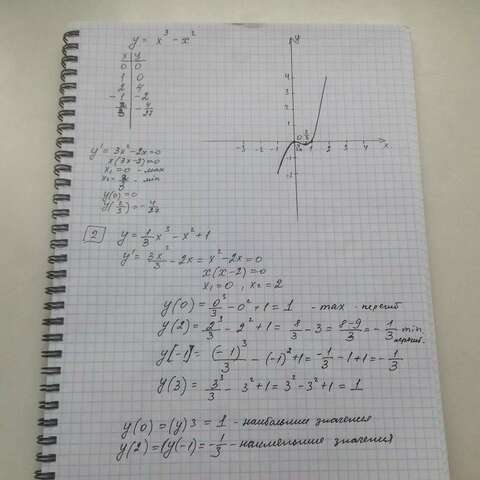 y = x³ - x²
x | y
0 | 0
1 | 0
2 | 4
-1 | -2
2/3 | -4/27
y
4
3
2
1
0 2/3
-3 -2 -1 1 2 3 4 5 x
-1
-2
y' = 3x² - 2x = 0
x(3x-2)=0
x₁ = 0 - max
x₂ = 2/3 - min
y(0) = 0
y(2/3) = -4/27
2 y = 1/3 x³ - x² + 1
y' = 3x²/3 - 2x = x² - 2x = 0
x(x-2) = 0
x₁ = 0, x₂ = 2
y(0) = 0³/3 - 0² + 1 = 1 - max - перегиб
y(2) = 2³/3 - 2² + 1 = 8/3 - 3 = 8-9/3 = -1/3 min
перегиб.
y(-1) = (-1)³/3 - (-1)² + 1 = -1/3 - 1 + 1 = -1/3
y(3) = 3³/3 - 3² + 1 = 3² - 3² + 1 = 1
y(0) = (y)3 = 1 - наибольшие значения
y(2) = (y(-1) = -1/3 - наименьшие значения